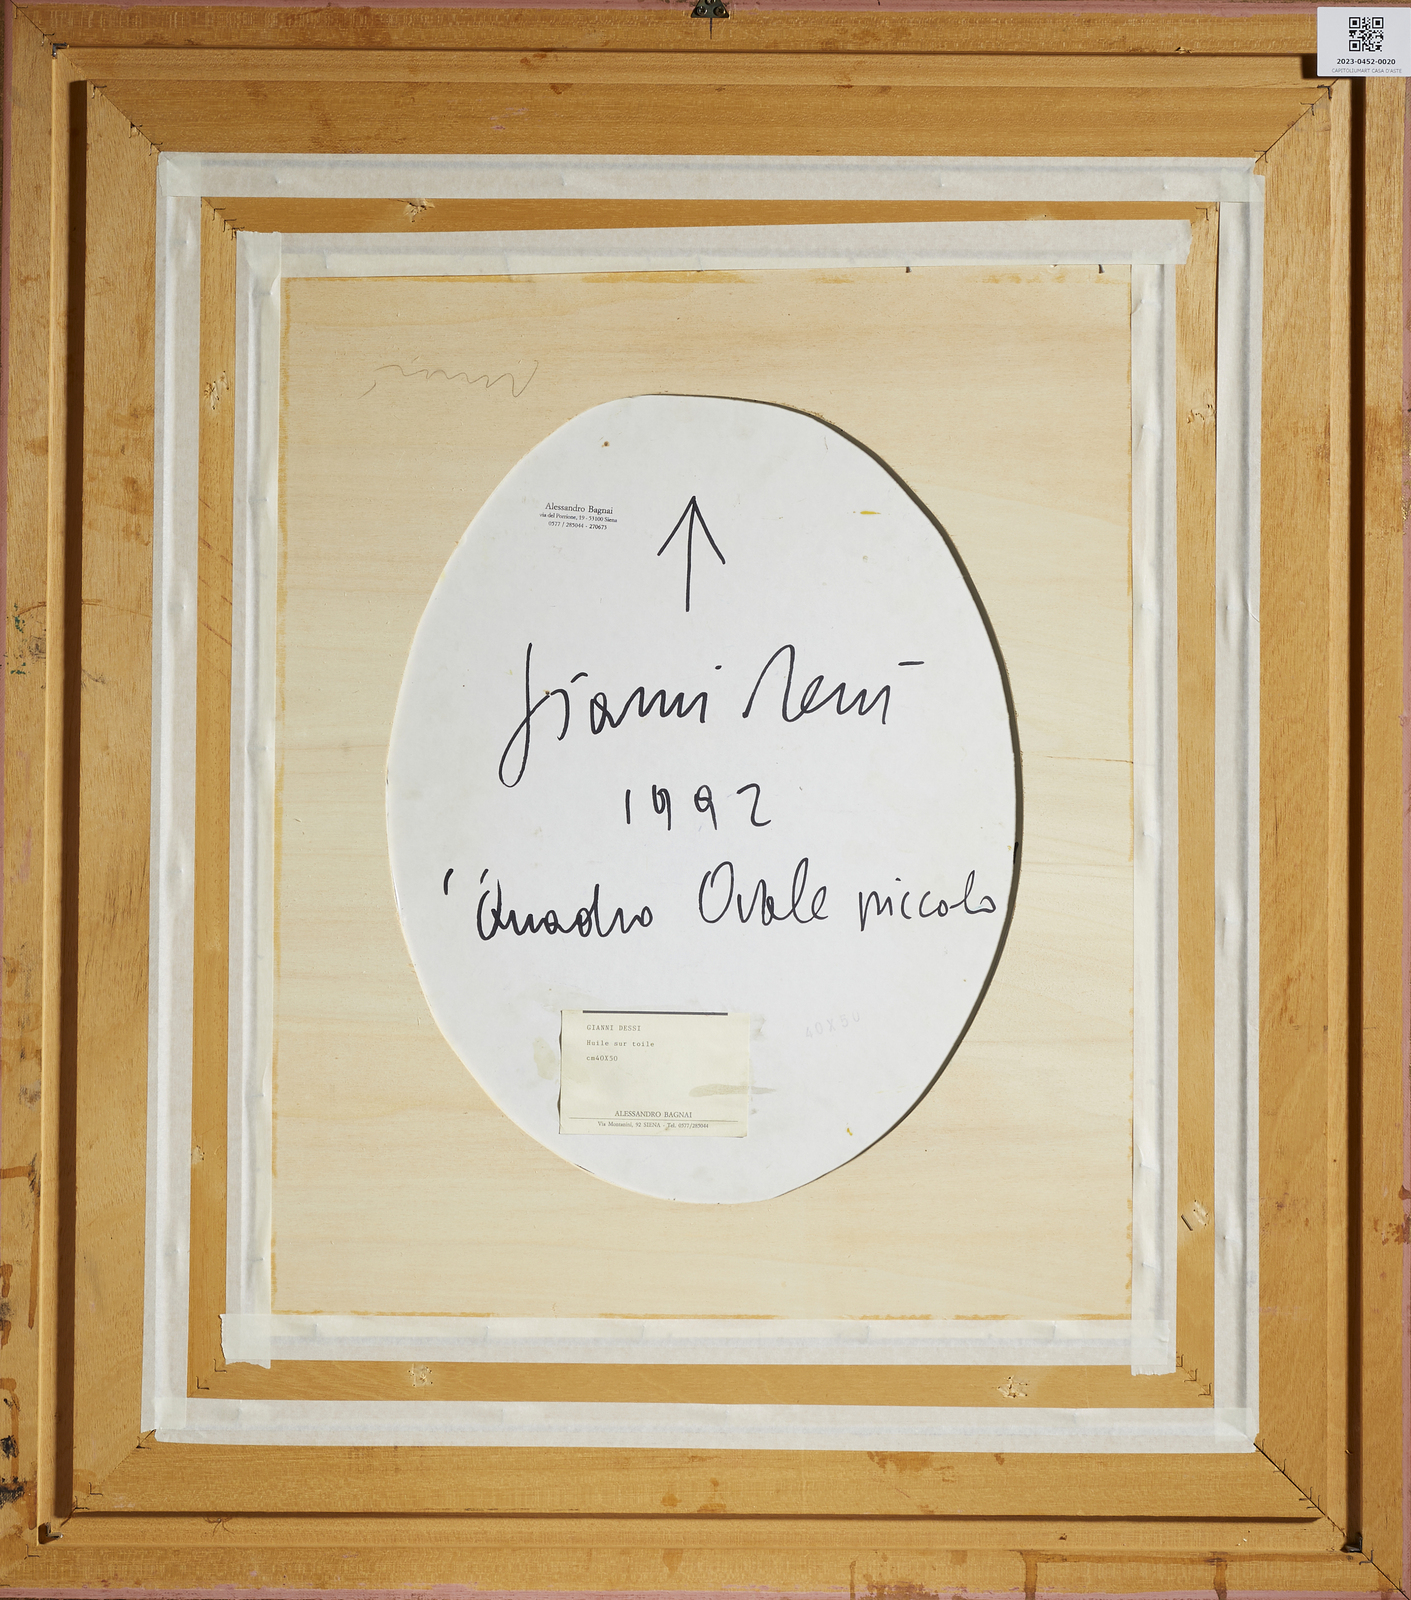 2023-0452-0020
CAPITOLIUMART CASA D'ASTE
Alessandro Bagnai
via del Porrione, 19 - 53100 Siena
0577 / 285044 - 270673
Gianni Dessì
1992
"Quadro Ovale piccolo
40X50
GIANNI DESSI
Huile sur toile
cm40X50
ALESSANDRO BAGNAI
Via Montanini, 92 SIENA - Tel. 0577/285044